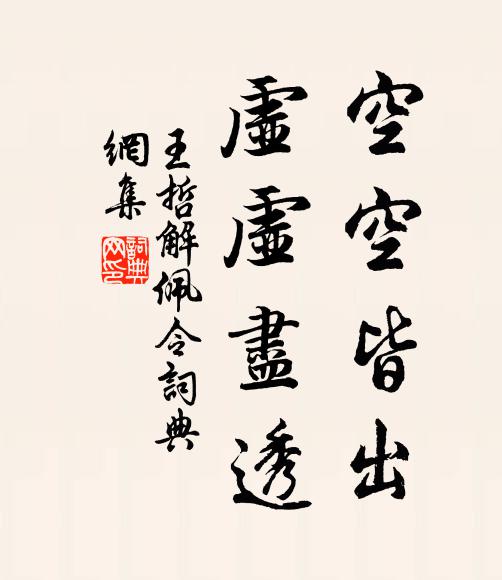 空空皆出
虛虛盡透
王哲解佩令詞典
網集
詞典網印